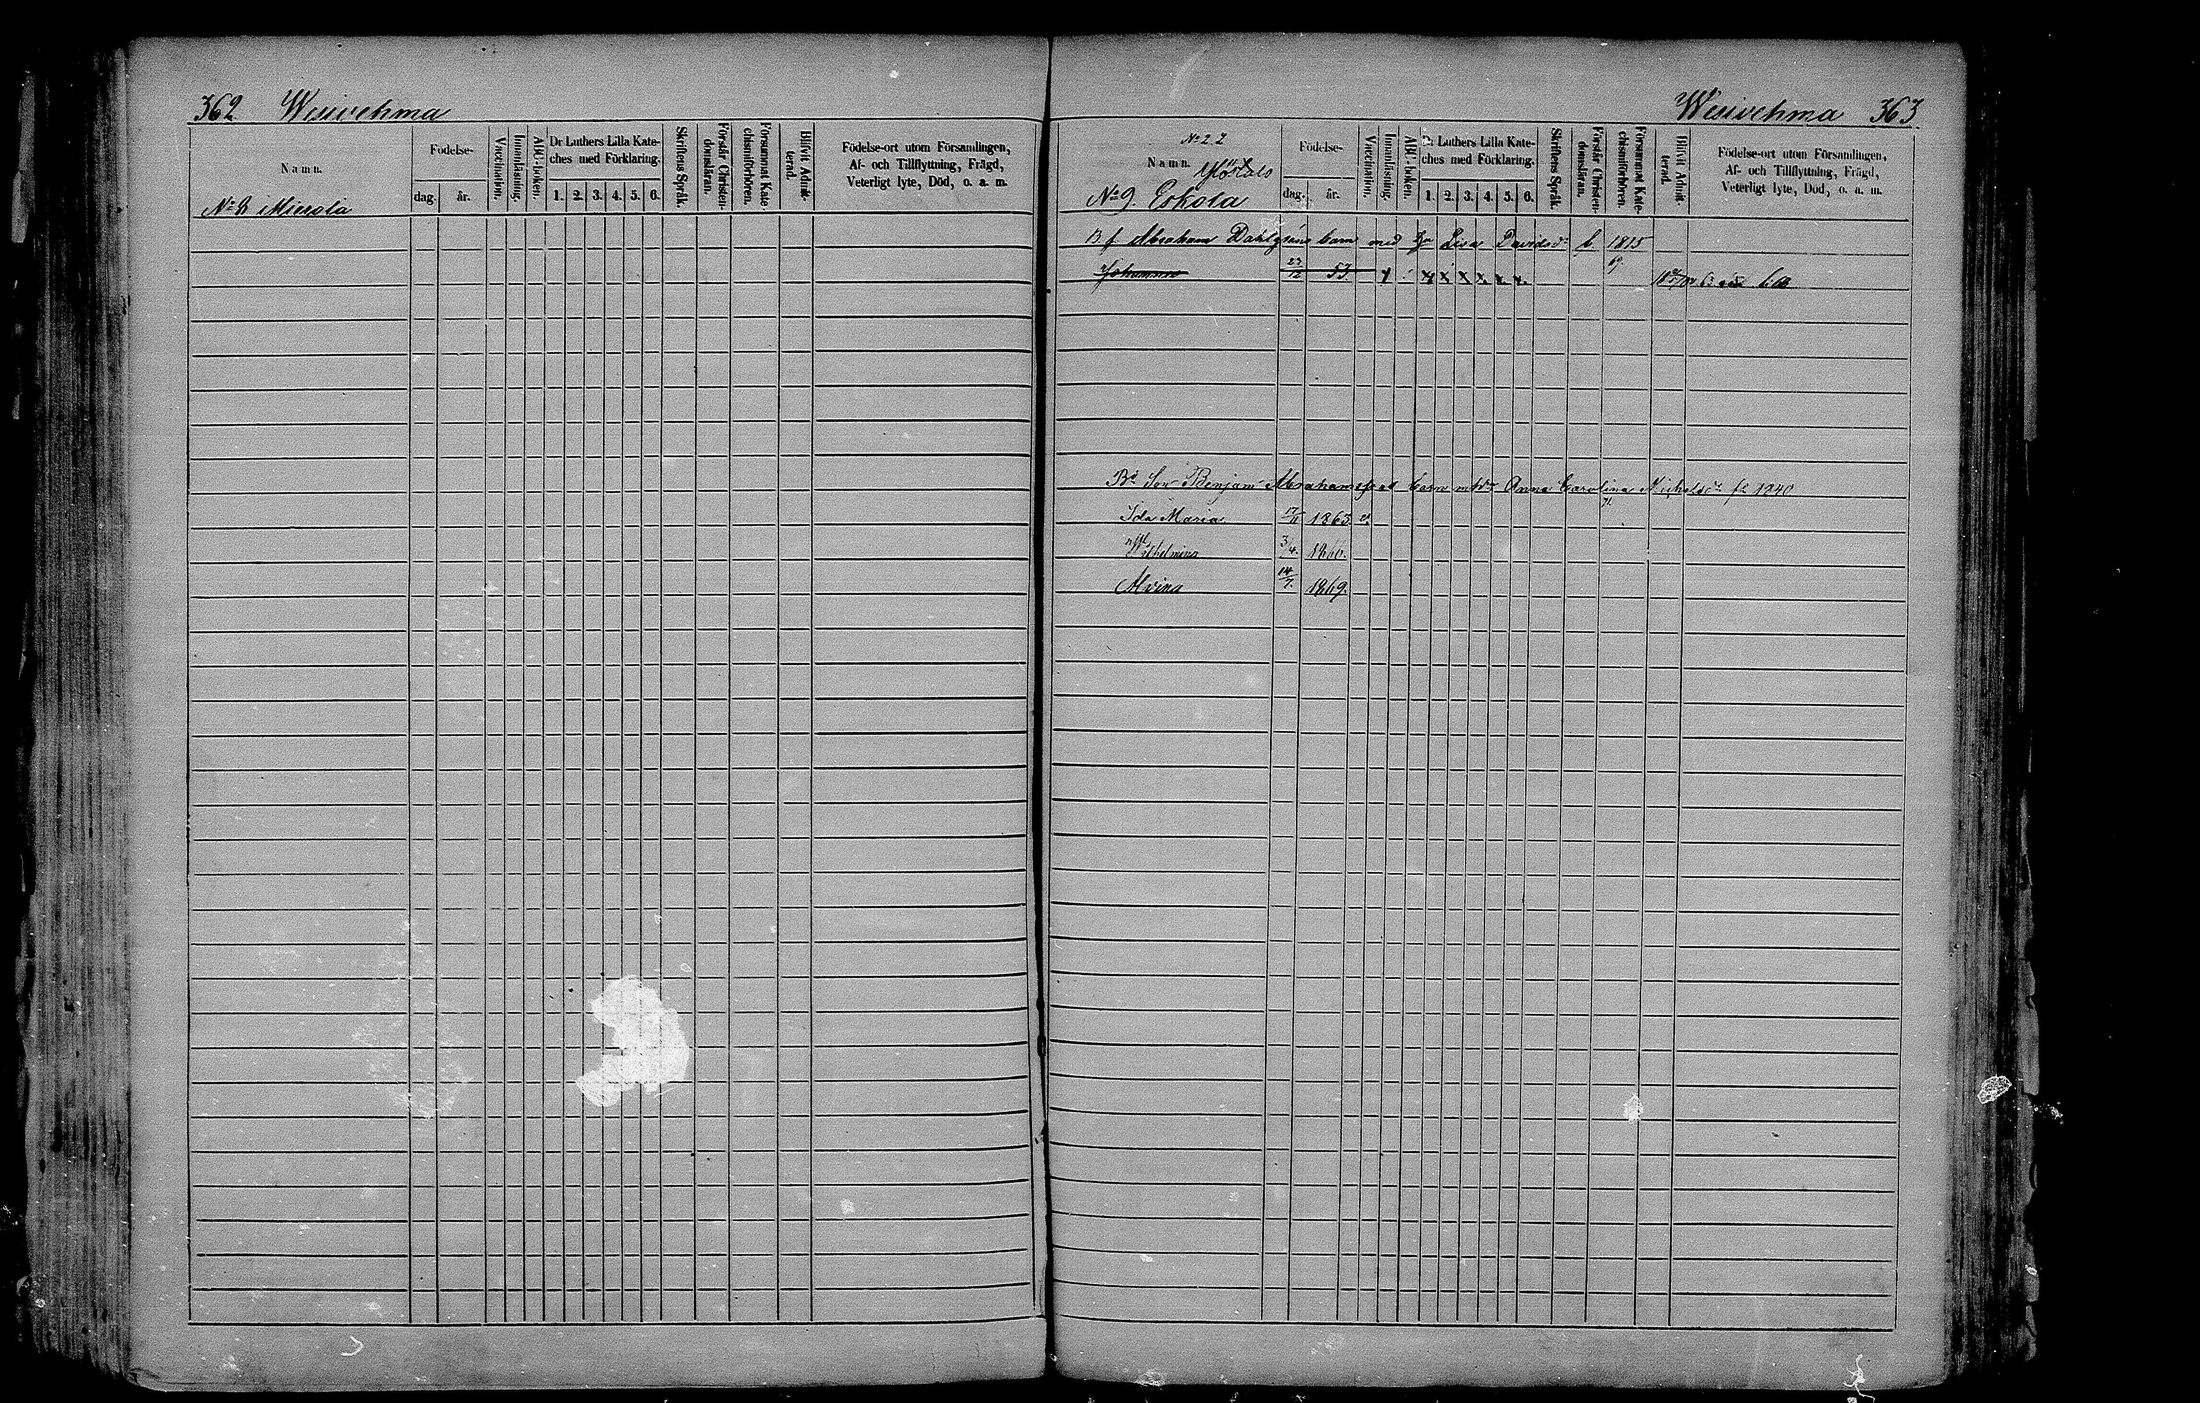 362 Wesivehma
Namn.
Födelse-
dag.
år.
Vaccination.
Innanläsning.
ABC-boken.
Dr Luthers Lilla Kate-
ches med Förklaring.
1. 2. 3. 4. 5. 6.
Skriftens Språk.
Förstår Christen-
domsläran.
Försummat Kate-
chismiförhören.
Blifvit Admit-
terad.
Födelse-ort utom Församlingen,
Af- och Tillflyttning, Frägd,
Veterligt lyte, Död, o. a. m.
No 8 Mierola
Wesivehma 363
No 22
Namn.
No 9. Eskola
Födelse-
dag.
år.
Vaccination.
Innanläsning.
ABC-boken.
Dr Luthers Lilla Kate-
ches med Förklaring.
1. 2. 3. 4. 5. 6.
Skriftens Språk.
Förstår Christen-
domsläran.
Försummat Kate-
chismiförhören.
Blifvit Admit-
terad.
Födelse-ort utom Församlingen,
Af- och Tillflyttning, Frägd,
Veterligt lyte, Död, o. a. m.
B f Abraham Dahlgréns barn med Lisa Davidsdr f. 1815
69
Johannes 27/12 53 x x x x x x x
Bd Son Benjam Abrahamss barn Anna Carolina f. 1840
71
Ida Maria 17/11 1863
Wilhelmina 3/4. 1866.
Alvina 14/7. 1869.